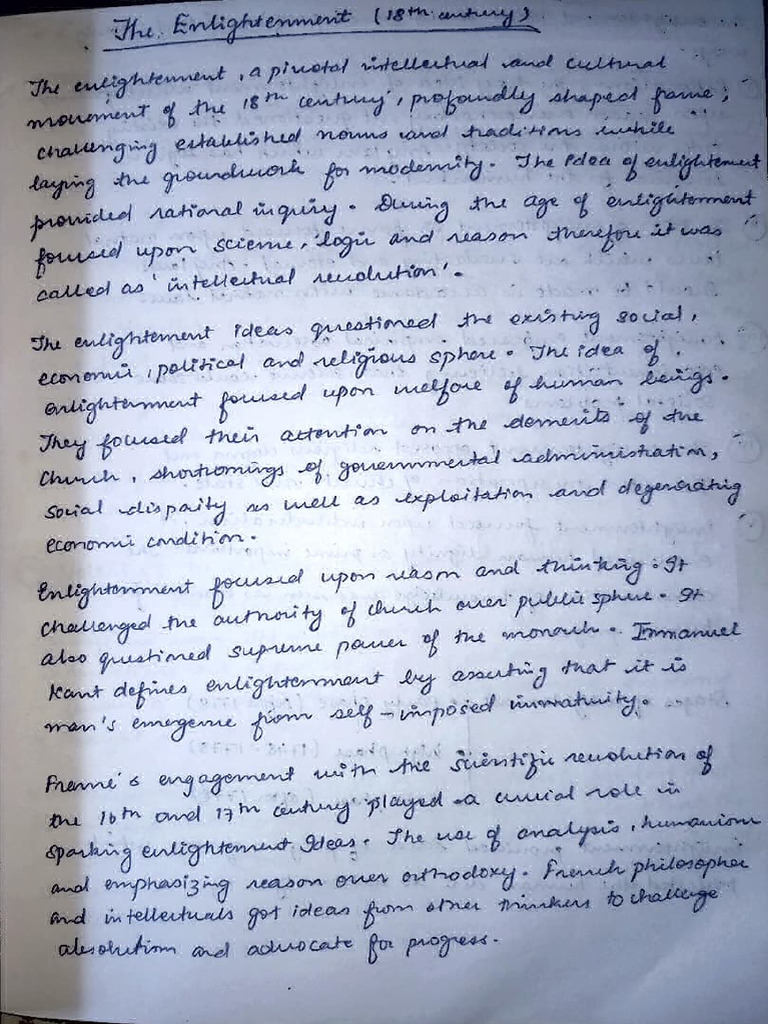 The Enlightenment (18th century)
The enlightenment, a pivotal intellectual and cultural
movement of the 18th century, profoundly shaped france,
challenging established norms and traditions while
laying the groundwork for modernity. The Idea of enlightement
provided rational inquiry. During the age of enlightenment
focused upon science, logic and reason therefore it was
called as 'intellectual revolution'.
The enlightement ideas questioned the existing social,
economic, political and religious sphere. The idea of
enlightenment focused upon welfare of human beings.
They focused their attention on the demerits of the
Church, shortcomings of governmental administration,
social disparity as well as exploitation and degenerating
economic condition.
Enlightenment focused upon reason and thinking. It
challenged the authority of church over public sphere. It
also questioned supreme power of the monarch. Immanuel
Kant defines enlightenment by asserting that it is
man's emergence from self-imposed immaturity.
France's engagement with the scientific revolution of
the 16th and 17th century played a crucial role in
sparking enlightement Ideas. The use of analysis, humanism
and emphasizing reason over orthodoxy. French philosopher
and intellectuals got ideas from other thinkers to challenge
absolutism and advocate for progress.